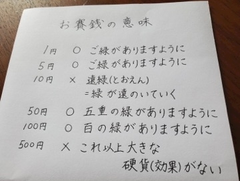 お賽銭の意味
1円 ○ ご縁がありますように
5円 ○ ご縁がありますように
10円 × 遠縁(とおえん)
=縁が遠のいていく
50円 ○ 五重の縁がありますように
100円 ○ 百の縁がありますように
500円 × これ以上大きな
硬貨(効果)がない